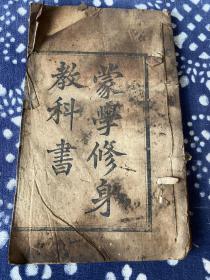 蒙學修身
教科書